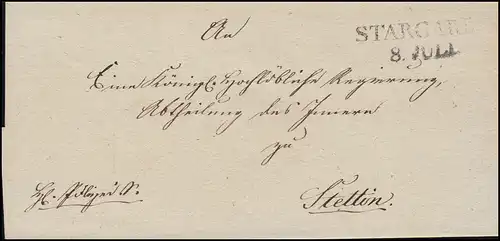 An
STARGARD
8. JULI
Eine Königl. Hochlöbliche Regierung,
Abtheilung des Innern
zu
Stettin.